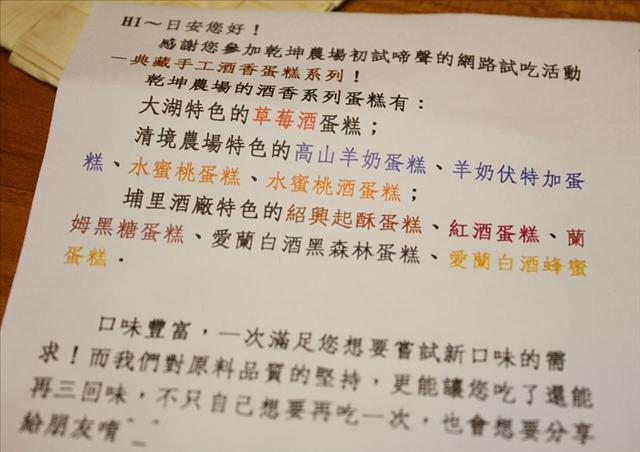 HI～日安您好！
感謝您參加乾坤農場初試啼聲的網路試吃活動
—典藏手工酒香蛋糕系列！
乾坤農場的酒香系列蛋糕有：
大湖特色的草莓酒蛋糕；
清境農場特色的高山羊奶蛋糕、羊奶伏特加蛋
糕、水蜜桃蛋糕、水蜜桃酒蛋糕；
埔里酒廠特色的紹興起酥蛋糕、紅酒蛋糕、蘭
姆黑糖蛋糕、愛蘭白酒黑森林蛋糕、愛蘭白酒蜂蜜
蛋糕．
口味豐富，一次滿足您想要嘗試新口味的需
求！而我們對原料品質的堅持，更能讓您吃了還能
再三回味，不只自己想要再吃一次，也會想要分享
給朋友唷^_^